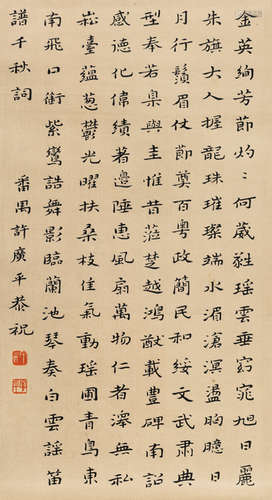 金英絢芳節灼〻何葳蕤瑤雲垂窈窕旭日麗
朱旗大人握龍珠璀璨瑞水湄滄溟盪胸臆日
月行鬚眉仗節奠百粵政簡民和綏文武肅典
型奉若臬與圭惟昔蒞楚越鴻猷載豐碑南詔
感德化偉績著邊陲惠風扇萬物仁者澤無私
崧臺蘊蔥鬱光曜扶桑枝佳氣動瑤圃青鳥東
南飛口銜紫鸞誥舞影臨蘭池琴奏白雲謠笛
譜千秋詞
番禺許廣平恭祝